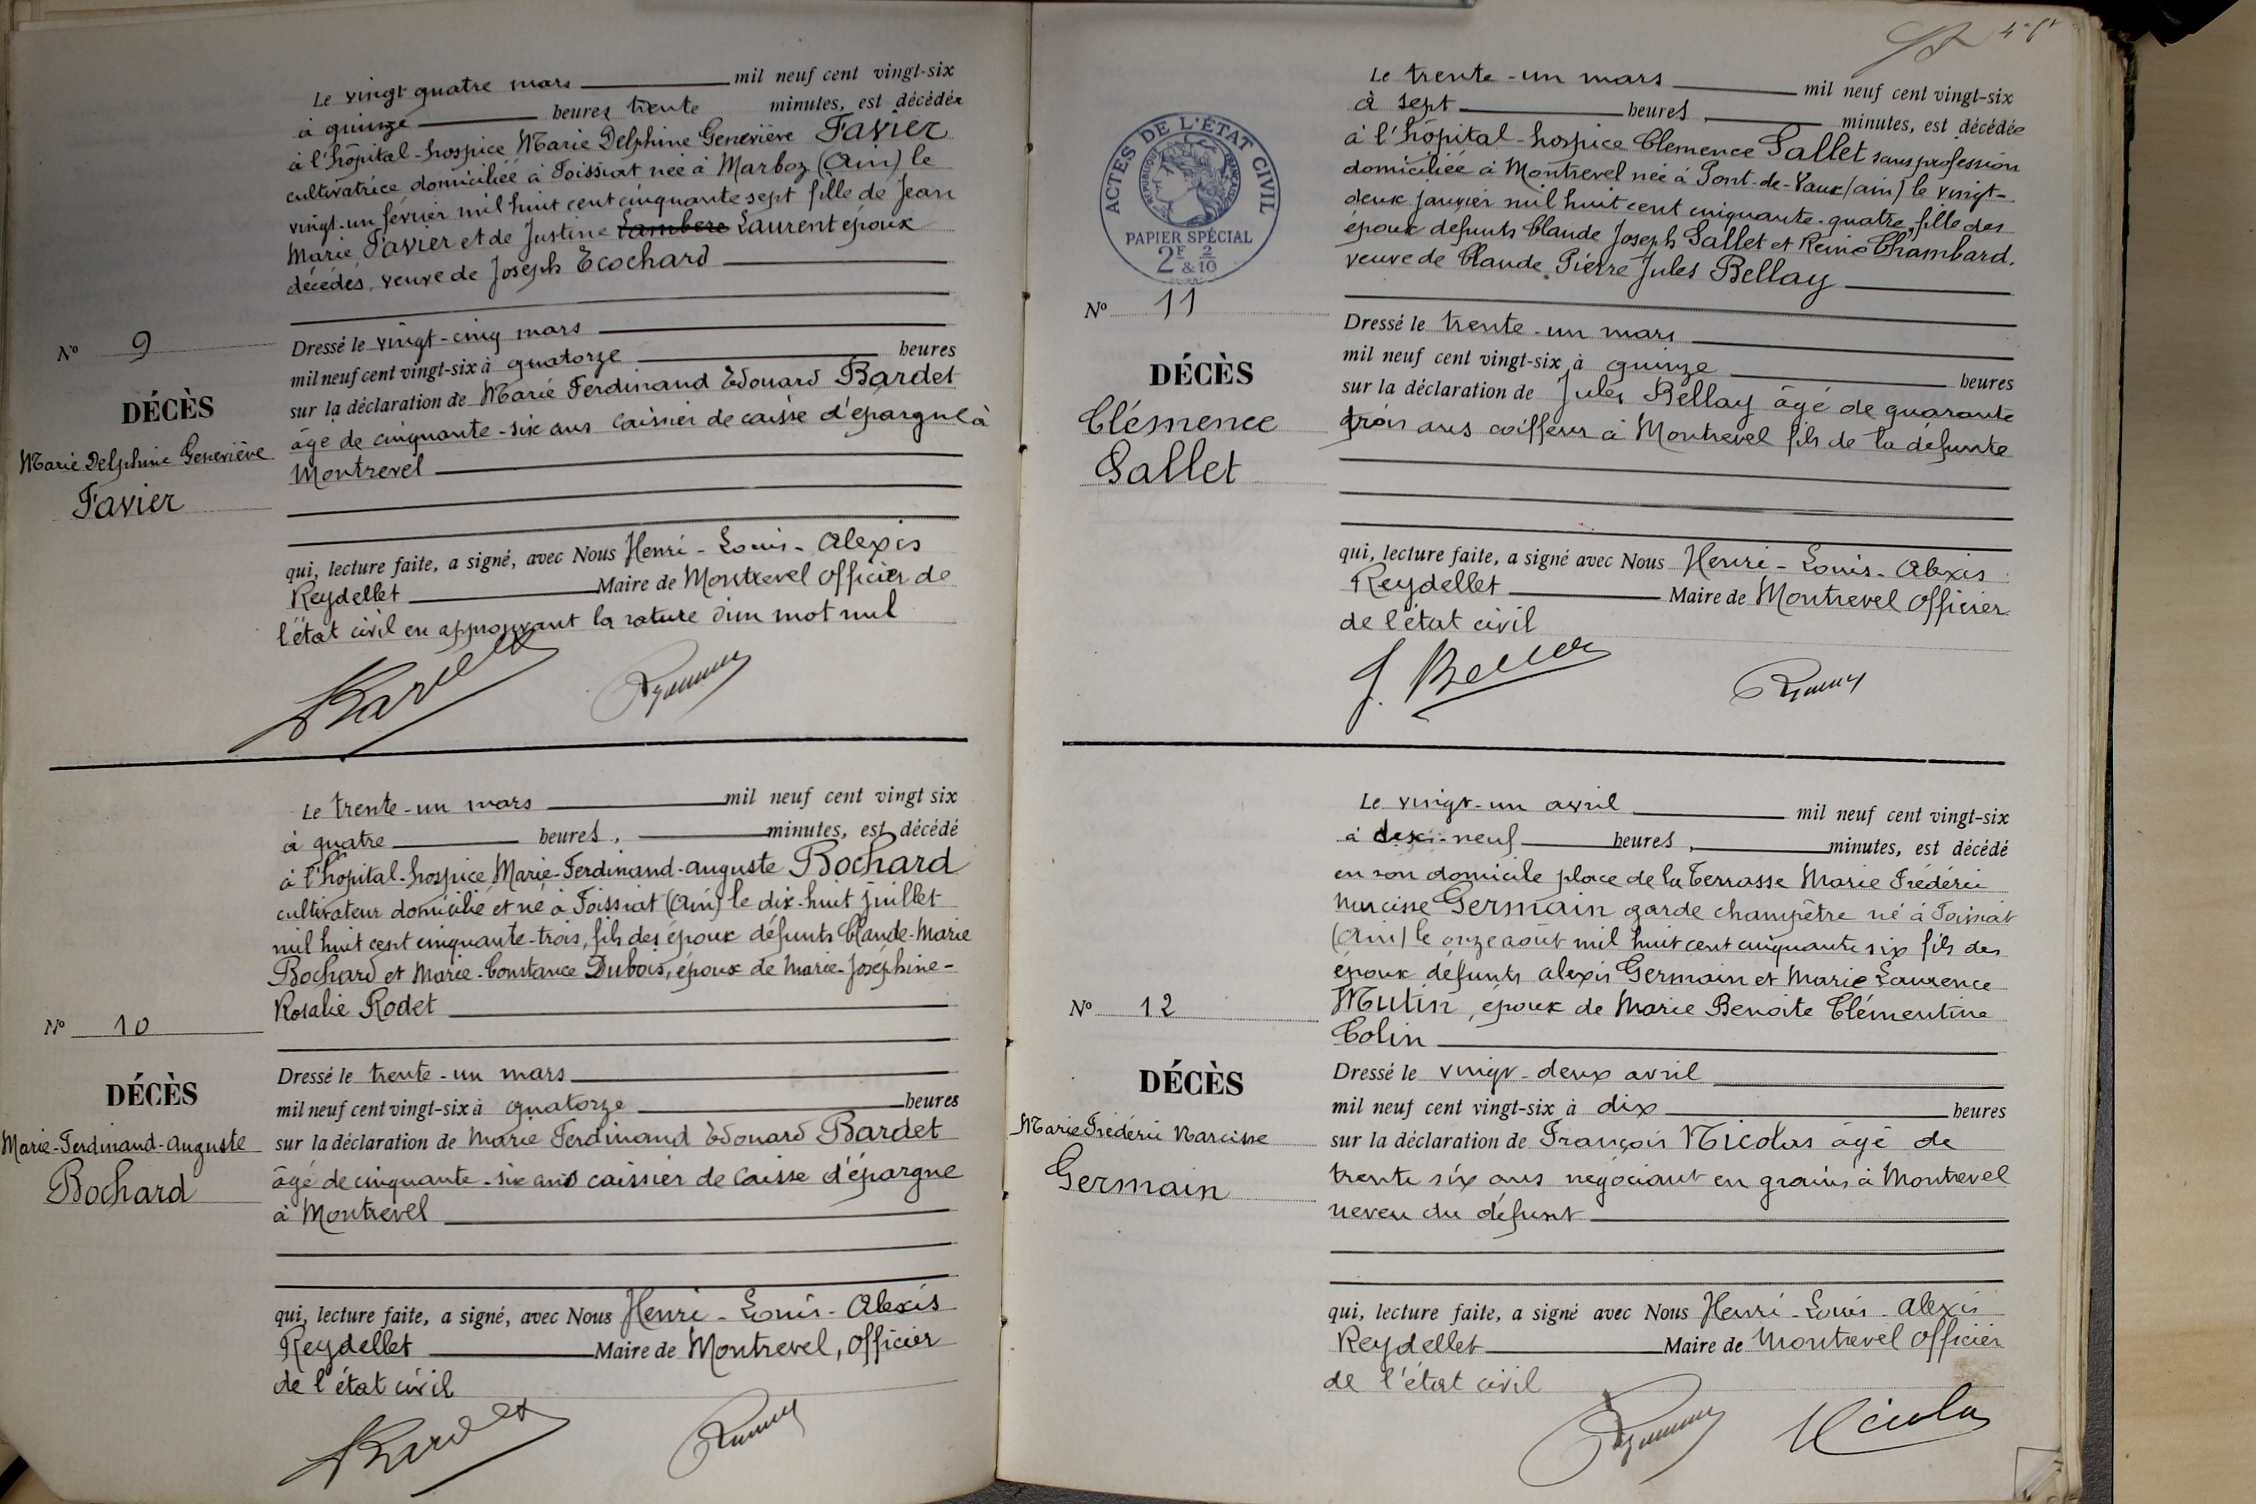 Le vingt quatre mars mil neuf cent vingt-six
à quinze heures trente minutes, est décédée
à l'hôpital-hospice Marie Delphine Geneviève Favier
cultivatrice domiciliée à Foissiat née à Marboz (Ain) le
vingt-un février mil huit cent cinquante sept fille de Jean
Marie Favier et de Justine Lambere Laurent époux
décédés, veuve de Joseph Ecochard
N° 9
DÉCÈS
Marie Delphine Geneviève
Favier
Dressé le vingt-cinq mars
mil neuf cent vingt-six à quatorze heures
sur la déclaration de Marie Ferdinand Edouard Bardet
âgé de cinquante-six ans caissier de caisse d'épargne à
Montrevel
qui, lecture faite, a signé, avec Nous Henri-Louis-Alexis
Reydellet Maire de Montrevel officier de
l'état civil en approuvant la rature d'un mot nul
Le trente-un mars mil neuf cent vingt six
à quatre heures, minutes, est décédé
à l'hôpital-hospice Marie-Ferdinand-Auguste Bochard
cultivateur domicilié et né à Foissiat (Ain) le dix-huit juillet
mil huit cent cinquante-trois, fils des époux défunts Claude-Marie
Bochard et Marie-Constance Dubois, époux de Marie-Joséphine-
Rosalie Rodet
N° 10
DÉCÈS
Marie-Ferdinand-Auguste
Bochard
Dressé le trente-un mars
mil neuf cent vingt-six à quatorze heures
sur la déclaration de Marie Ferdinand Edouard Bardet
âgé de cinquante-six ans caissier de caisse d'épargne
à Montrevel
qui, lecture faite, a signé, avec Nous Henri-Louis-Alexis
Reydellet Maire de Montrevel, officier
de l'état civil
ACTES DE L'ÉTAT CIVIL
RÉPUBLIQUE FRANÇAISE
PAPIER SPÉCIAL
2F & 2/10
Le trente-un mars mil neuf cent vingt-six
à sept heures, minutes, est décédée
à l'hôpital-hospice Clemence Sallet sans profession
domiciliée à Montrevel née à Pont-de-Vaux (ain) le vingt-
deux janvier mil huit cent cinquante-quatre, fille des
époux défunts Claude Joseph Sallet et Reine Chambard.
veuve de Claude Pierre Jules Bellay
N° 11
DÉCÈS
Clémence
Sallet
Dressé le trente-un mars
mil neuf cent vingt-six à quinze heures
sur la déclaration de Jules Bellay âgé de quarante
trois ans coiffeur à Montrevel fils de la défunte
qui, lecture faite, a signé avec Nous Henri-Louis-Alexis
Reydellet Maire de Montrevel officier
de l'état civil
Le vingt-un avril mil neuf cent vingt-six
à dix-neuf heures, minutes, est décédé
en son domicile place de la Terrasse Marie Frédéric
Narcisse Germain garde champêtre né à Foissiat
(Ain) le onze août mil huit cent cinquante six fils des
époux défunts Alexis Germain et Marie Laurence
Mutin, époux de Marie Benoite Clémentine
Colin
N° 12
DÉCÈS
Marie Frédéric Narcisse
Germain
Dressé le vingt-deux avril
mil neuf cent vingt-six à dix heures
sur la déclaration de François Nicolas âgé de
trente six ans négociant en grains à Montrevel
neveu du défunt
qui, lecture faite, a signé avec Nous Henri-Louis-Alexis
Reydellet Maire de Montrevel officier
de l'état civil
Nicolas